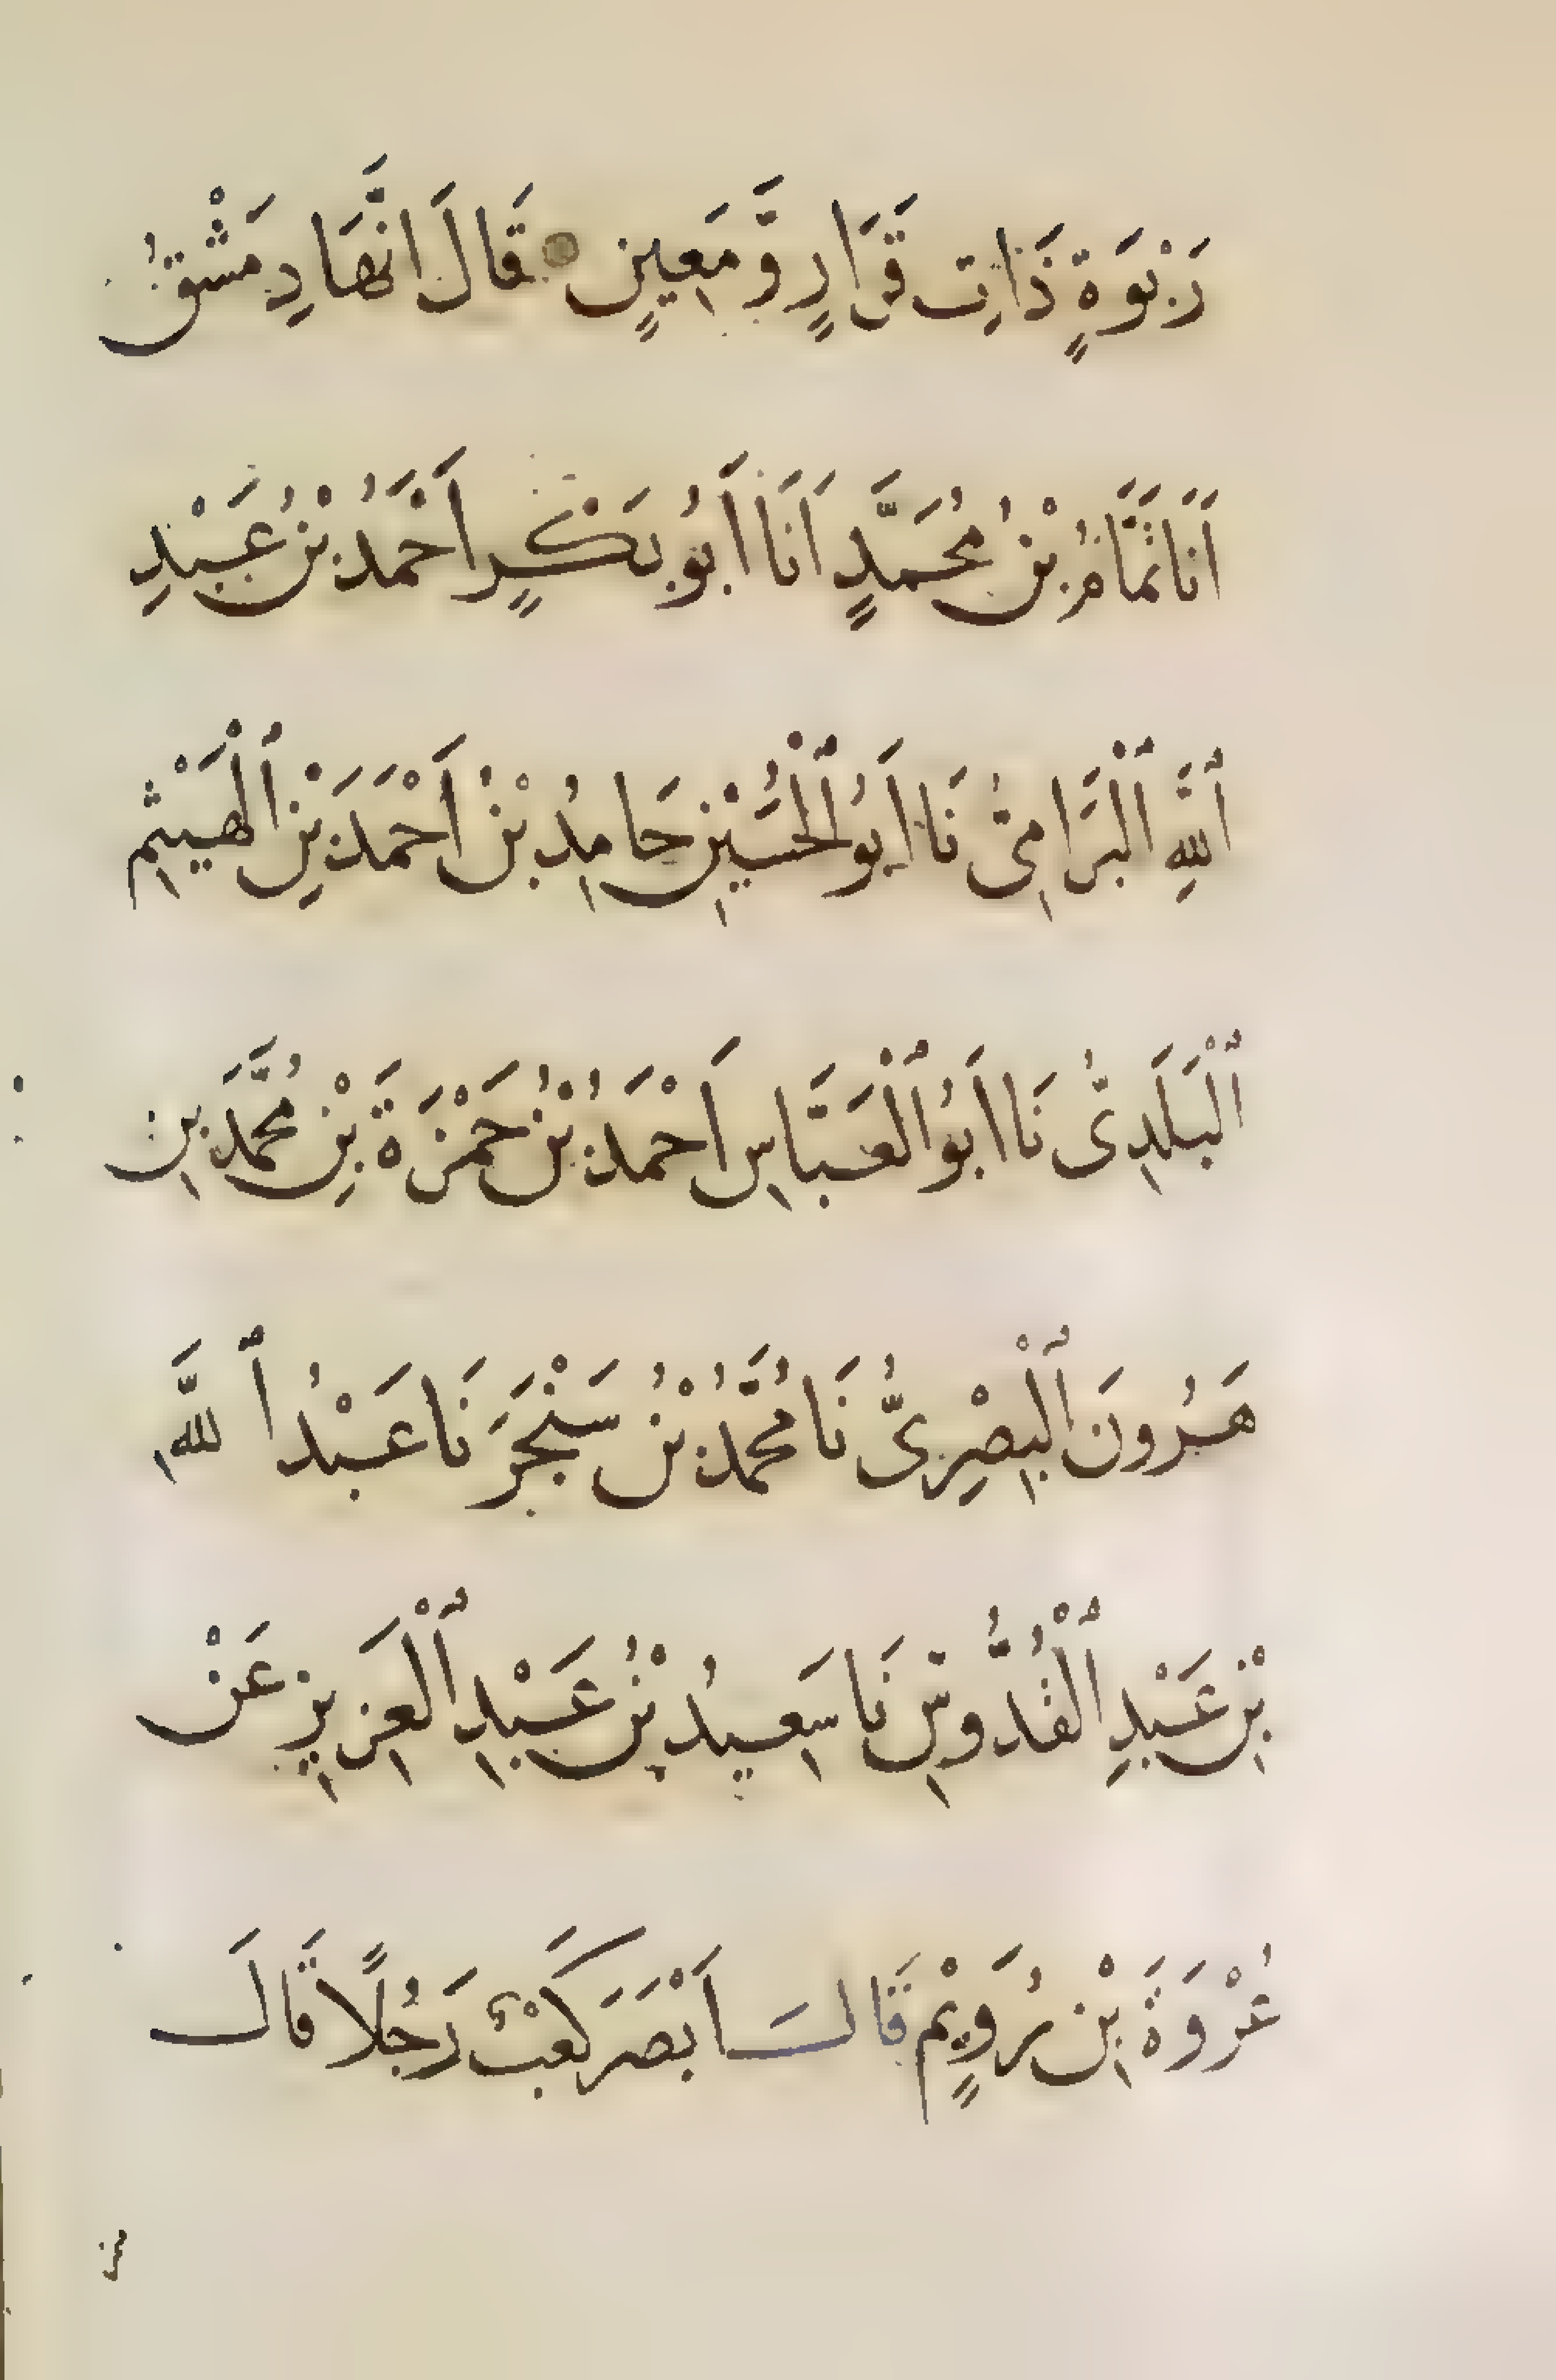 رَبْوَةٍ ذَاتِ قَرَارٍ وَّمَعِينٍ قَالَ اِنَّهَا دِمَشْقُ
اَنَا تَمَّامُ بْنُ مُحَمَّدٍ اَنَا اَبُو بَكْرٍ اَحْمَدُ بْنُ عَبْدِ
ٱللهِ ٱلْبَرَامِىُّ نَا اَبُو ٱلْحُسَيْنِ حَامِدُ بْنُ اَحْمَدَ بْنِ ٱلْهَيْثِمِ
ٱلْبَلَدِىُّ نَا اَبُو ٱلْعَبَّاسِ اَحْمَدُ بْنُ حَمْزَةَ بْنِ مُحَمَّدَ بِن
هَرُونَ ٱلْبِصْرِىُّ نَا مُحَمَّدُ بْنُ سَنْجَرَ نَا عَبْدُ ٱللَّهِ
بْنِ عَبْدِ ٱلْقُدُّوسِ نَا سَعِيدُ بْنُ عَبْدِ ٱلْعَزِيزِ عَنْ
عُرْوَةَ بْنِ رُوَيْمٍ قَالَ اَبْصَرَ كَعْبٌ رَجُلًا قَالَ
من